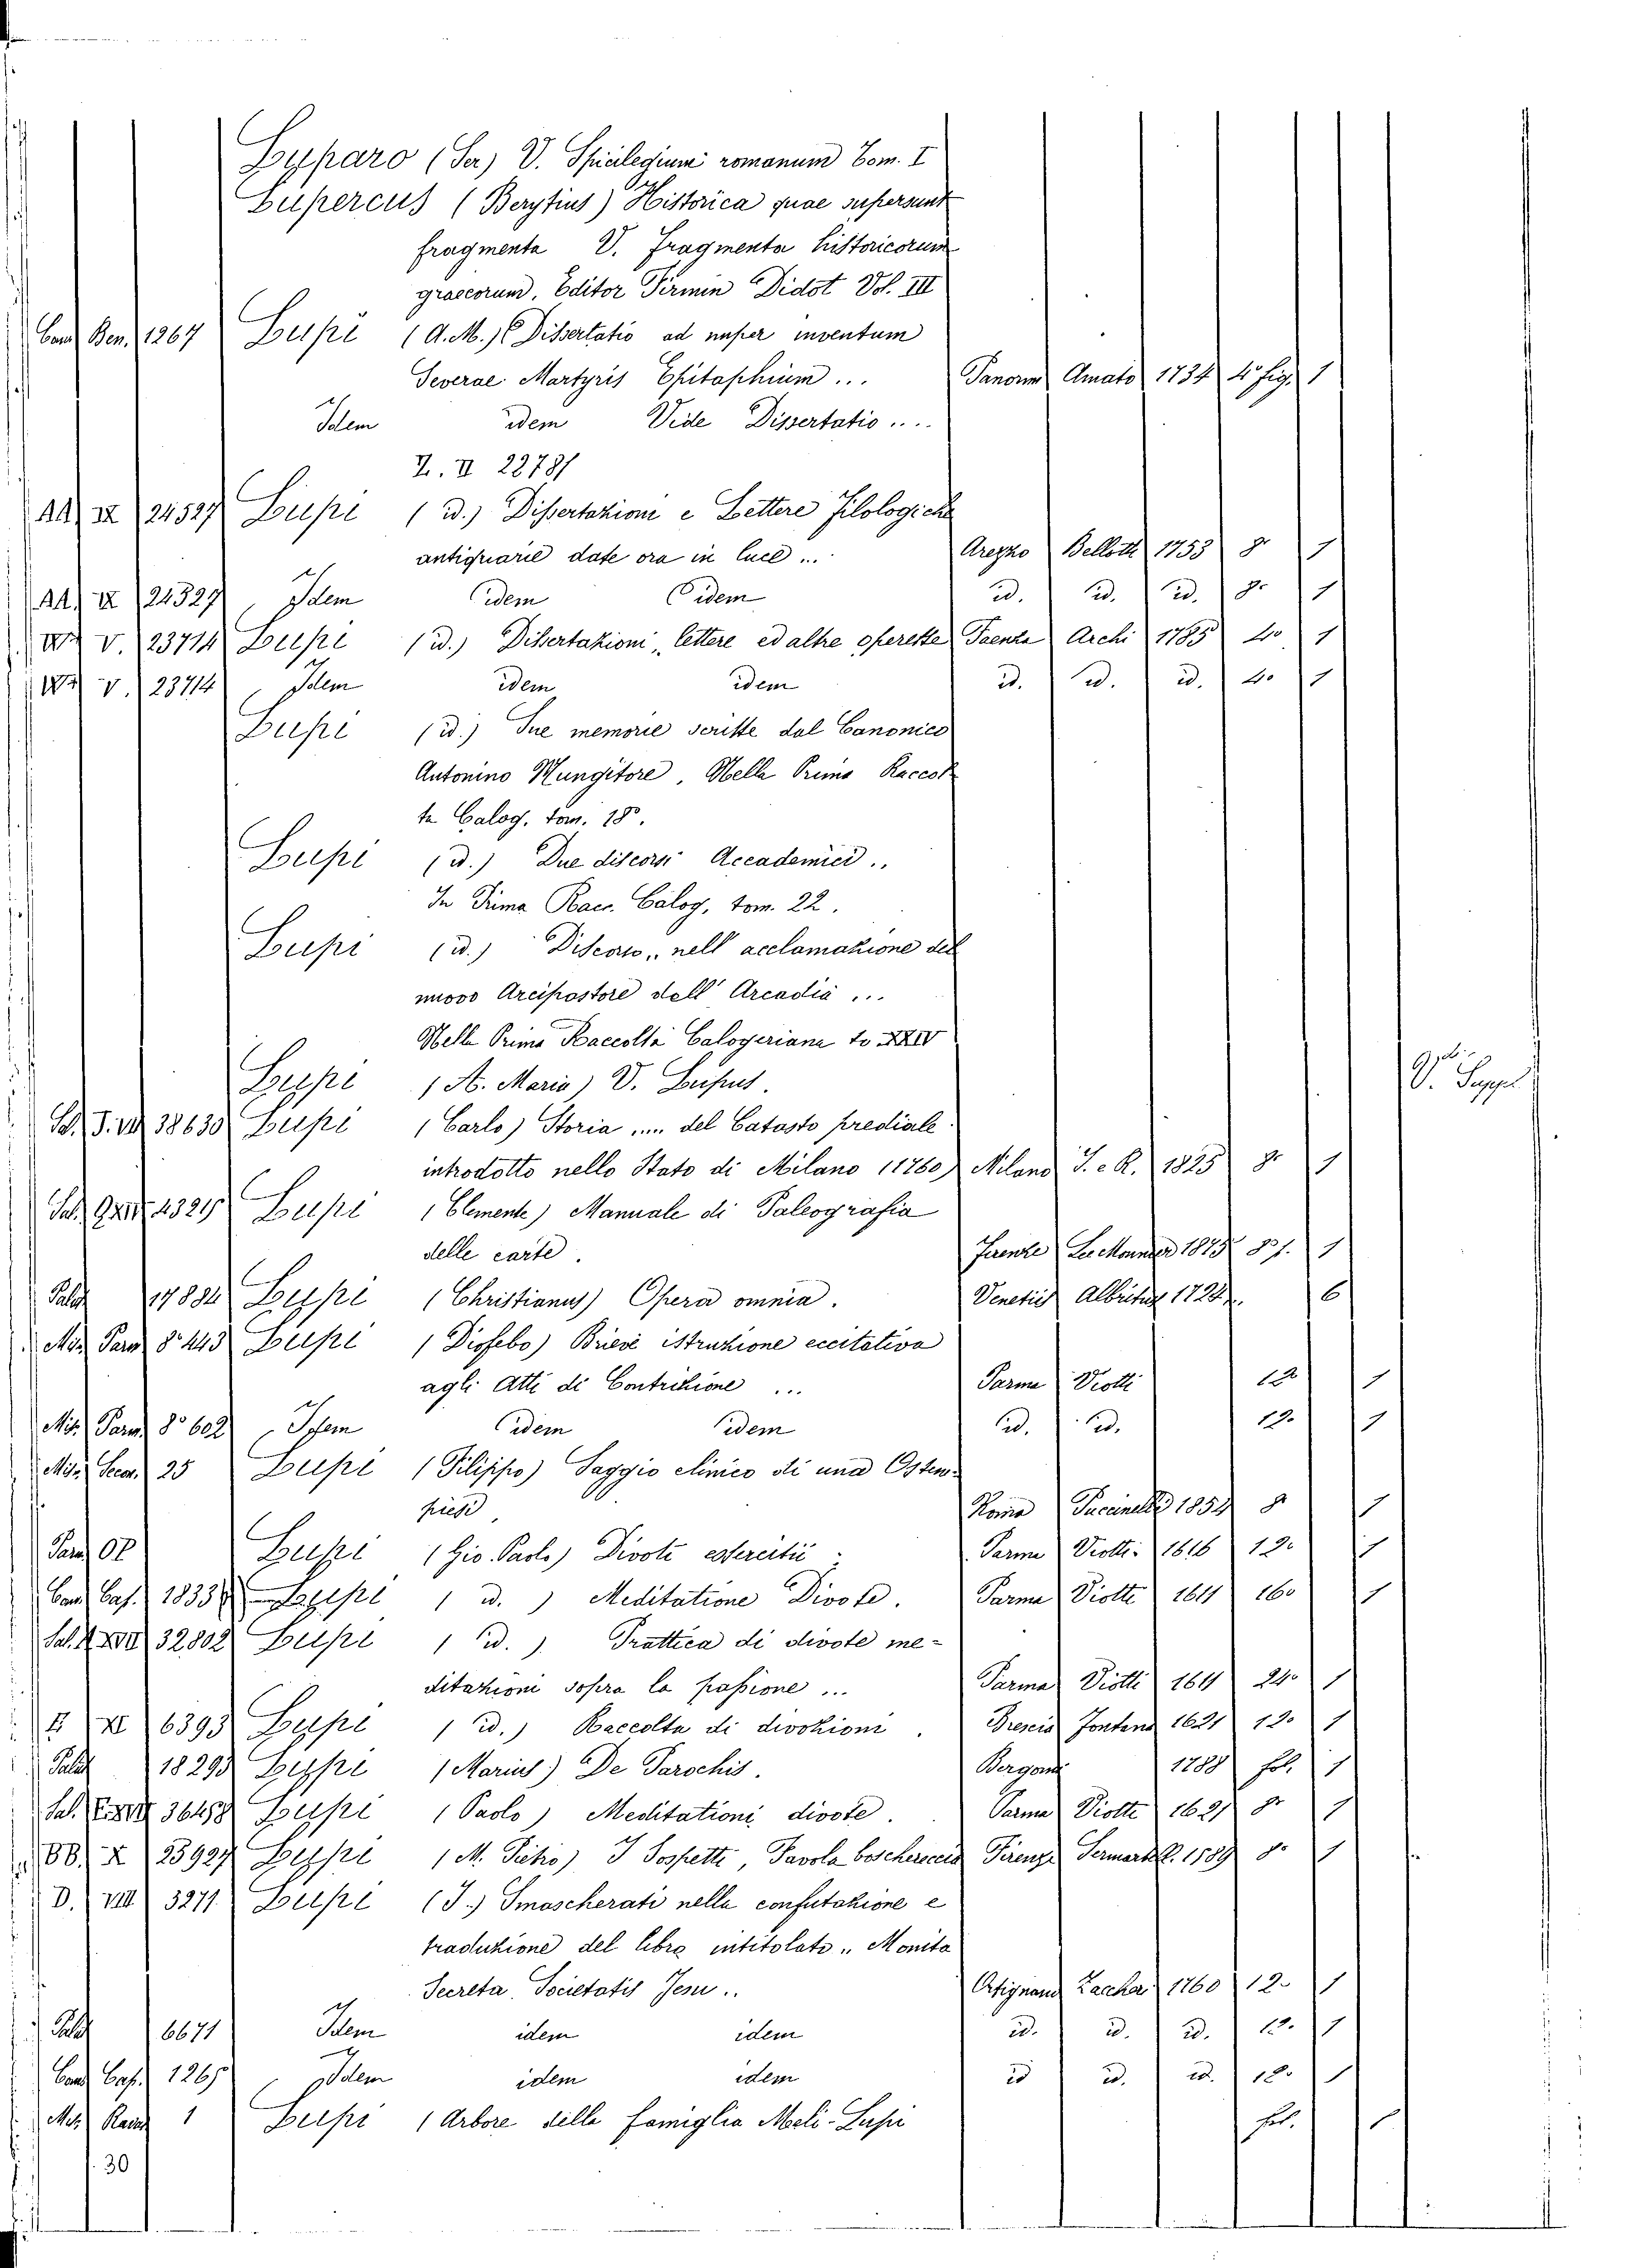 Luparo (Ser) V. Spicilegium romanum Tom. I
Lupercus (Berytius) Historica quae supersunt
fragmenta V. Fragmenta historicorum
graecorum, Editor Firmin Didot Vol. III
Ben. 1267 Lupi (A.M.) Dissertatio ad nuper inventum
Severae Martyris Epitaphium ... Panorm Amato 1734 4º fig. 1
Idem idem Vide Dissertatio ....
Z. II 22781
AA IX 24527 Lupi (id.) Dissertazioni e Lettere Filologiche
antiquarie date ora in luce ... Arezzo Bellotti 1753 8º 1
AA IX 24527 Idem idem idem id. id. id. 8º 1
V. 23714 Lupi (id.) Dissertazioni, lettere ed altre operette Faenza Archi 1785 4º 1
V. 23714 Idem idem idem id. id. id. 4º 1
Lupi (id.) Sue memorie scritte dal Canonico
Antonino Mungitore, Nella Prima Raccol
ta Calog. tom. 18º.
Lupi (id.) Due discorsi Accademici ..
In Prima Racc. Calog. tom. 22.
Lupi (id.) Discorso, nell' acclamazione del
nuovo Arcipastore dell' Arcadia ...
Nella Prima Raccolta Calogeriana to XXIV
Lupi (A. Maria) V. Lupus. V. Suppl.
38630 Lupi (Carlo) Storia .... del Catasto prediale
introdotto nello Stato di Milano (1760) Milano I. e R. 1825 8º 1
Lupi (Clemente) Manuale di Paleografia
delle carte. Firenze Le Monnier 1875 8º f. 1
Palat 17884 Lupi (Christianus) Opera omnia. Venetiis Albritius 1724. 6
Mis. Parm 8º 443 Lupi (Diofebo) Brieve istruzione eccitativa
agli Atti di Contrizione ... Parma Viotti 12º 1
Mis. Parm 8º 602 Idem idem idem id. id. 12º 1
25 Lupi (Filippo) Saggio clinico di una Osten-
Roma Puccinelli 1854 8º 1
Lupi (Gio. Paolo) Divoti essercitii. Parma Viotti 1616 12º 1
Cas. 1833 Lupi ( id. ) Meditatione Divote. Parma Viotti 1611 16º 1
32802 Lupi ( id. ) Prattica di divote me-
ditazioni sopra la passione ... Parma Viotti 1611 24º 1
XI 6393 Lupi ( id.) Raccolta di divozioni. Brescia Fontana 1621 12º 1
Palat 18293 Lupi (Marius) De Parochis. Bergomi 1788 fol. 1
36458 Lupi (Paolo) Meditationi divote. Parma Viotti 1621 8º 1
BB. X 25927 Lupi (M. Pietro) I Sospetti, Favola boschereccia Firenze Sermart. 1589 8º 1
D. VIII 3271 Lupi (I.) Smascherati nella confutazione e
traduzione del libro intitolato " Monita
Secreta Societatis Jesu .. Ortignano Zaccheri 1760 12º 1
Palat 6671 Idem idem idem id. id. id. 12º 1
Cas. 1265 Idem idem idem id id. id. 12º 1
Mis. 1 Lupi (Arbore della famiglia Meli-Lupi fol. 1
30